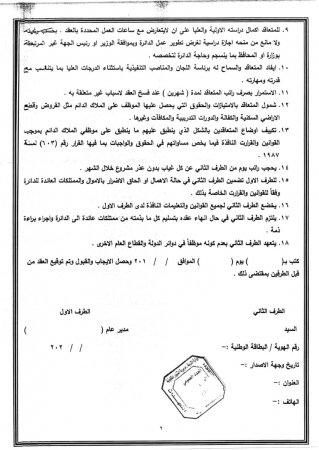 ٩. للمتعاقد اكمال دراسته الاولية والعليا على ان لايتعارض مع ساعات العمل المحددة بالعقد
ولا مانع من منحه اجازة دراسية لغرض تطوير عمل الدائرة وبموافقة الوزير او رئيس الجهة غير المرتبطة
بوزارة او المحافظ بما ينسجم وحاجة الدائرة لتخصصه .
١٠. ايفاد المتعاقد والسماح له برئاسة اللجان والمناصب التنفيذية باستثناء الدرجات العليا بما يتناسب مع
قدرته ومهارته .
١١. الاستمرار بصرف راتب المتعاقد لمدة ( شهرين ) عند فسخ العقد لاسباب غير متعلقة به .
١٢. شمول المتعاقد بالامتيازات والحقوق التي يحصل عليها الموظف على الملاك الدائم مثل القروض وقطع
الاراضي السكنية والكفالة والدورات التدريبية والمكافآت وغيرها .
١٣. تكييف اوضاع المتعاقدين بالشكل الذي ينطبق عليهم ما ينطبق على موظفي الملاك الدائم بموجب
القوانين والقرارت النافذة فيما يخص مساواتهم في الحقوق والواجبات بما فيها القرار رقم (٦٠٣) لسنة
١٩٨٧ .
١٤. يحجب راتب يوم من الطرف الثاني عن كل غياب بدون عذر مشروع خلال الشهر .
١٥. للطرف الاول تضمين الطرف الثاني في حالة الاهمال او الحاق الاضرار بالاموال والممتلكات العائدة للدائرة
وفقاً للقوانين والقرارات الخاصة بذلك .
١٦. يخضع الطرف الثاني لجميع القوانين والتعليمات النافذة لدى الطرف الاول .
١٧. يلتزم الطرف الثاني في حال انهاء عقده بتسليم كل ما بذمته من ممتلكات عائدة الى الدائرة واجراء براءة
ذمة .
١٨. يتعهد الطرف الثاني بعدم كونه موظفاً في دوائر الدولة والقطاع العام الاخرى .
كتب بـ( ) يوم ( ) الموافق / / ٢٠١ وحصل الايجاب والقبول وتم توقيع العقد من
الطرفين بمقتضى ذلك .
الطرف الثاني
الطرف الاول
السيد
مدير عام ( )
رقم الهوية / البطاقة الوطنية :-
٢٠٢ / /
تاريخ وجهة الاصدار :-
العنوان :-
الهاتف :-
٢